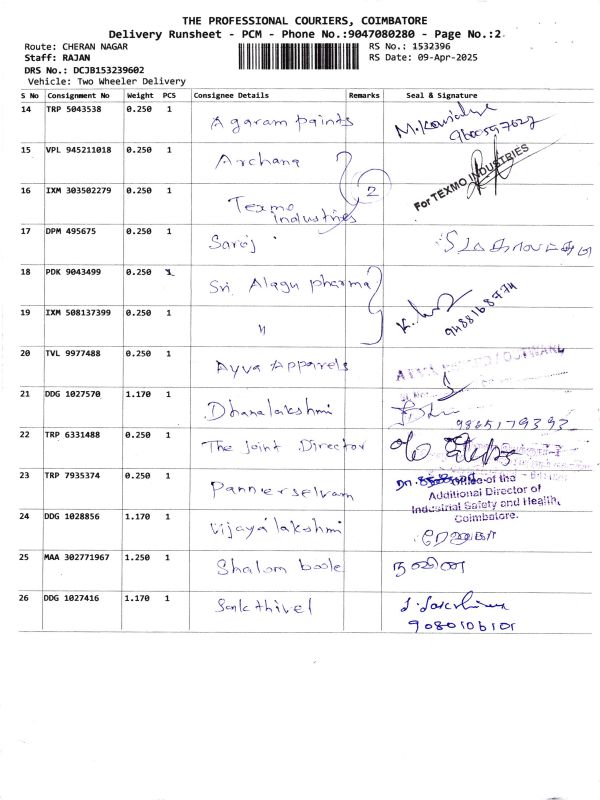 THE PROFESSIONAL COURIERS, COIMBATORE
Delivery Runsheet - PCM - Phone No.:9047080280 - Page No.:2
Route: CHERAN NAGAR
RS No.: 1532396
Staff: RAJAN
RS Date: 09-Apr-2025
DRS No.: DCJB153239602
Vehicle: Two Wheeler Delivery
S No Consignment No Weight PCS Consignee Details Remarks Seal & Signature
14 TRP 5043538 0.250 1 Agaram paints
15 VPL 945211018 0.250 1 Archana
For TEXMO INDUSTRIES
16 IXM 303502279 0.250 1 Texmo industries 2
17 DPM 495675 0.250 1 Saroj
18 PDK 9043499 0.250 1 Sri Alagu pharma
9488168774
19 IXM 508137399 0.250 1 "
20 TVL 9977488 0.250 1 Ayya Apparels
21 DDG 1027570 1.170 1 Dhanalakshmi
9865179393
22 TRP 6331488 0.250 1 The Joint Director
23 TRP 7935374 0.250 1 Pannerselvam
Office of the
Additional Director of
Industrial Safety and Health,
Coimbatore.
24 DDG 1028856 1.170 1 Vijayalakshmi
25 MAA 302771967 1.250 1 Shalom boole நவீன
26 DDG 1027416 1.170 1 Sakthivel
9080106101